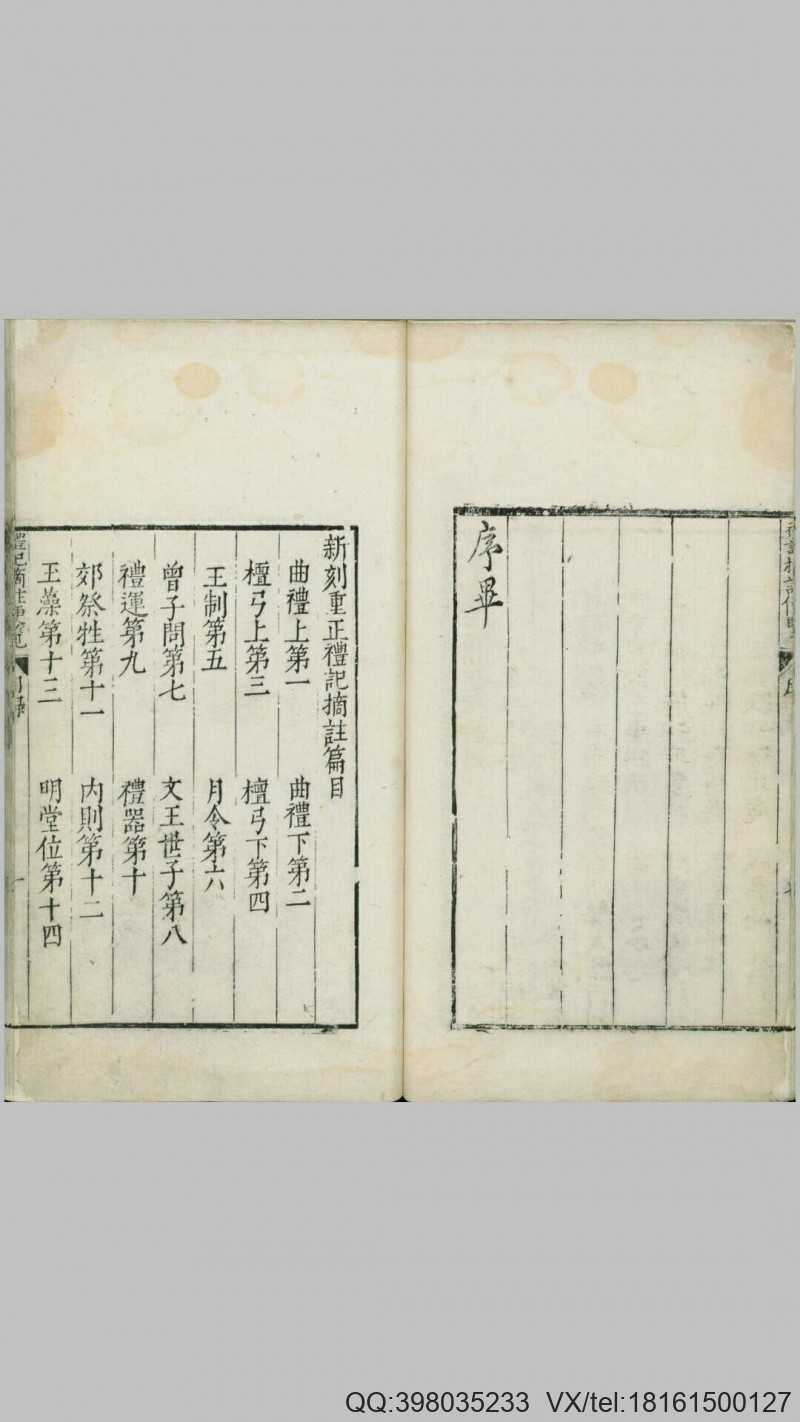 序畢
新刻重正禮記摘註篇目
曲禮上第一
曲禮下第二
檀弓上第三
檀弓下第四
王制第五
月令第六
曾子問第七
文王世子第八
禮運第九
禮器第十
郊祭牲第十一
内則第十二
玉藻第十三
明堂位第十四
QQ:398035233 VX/tel:18161500127